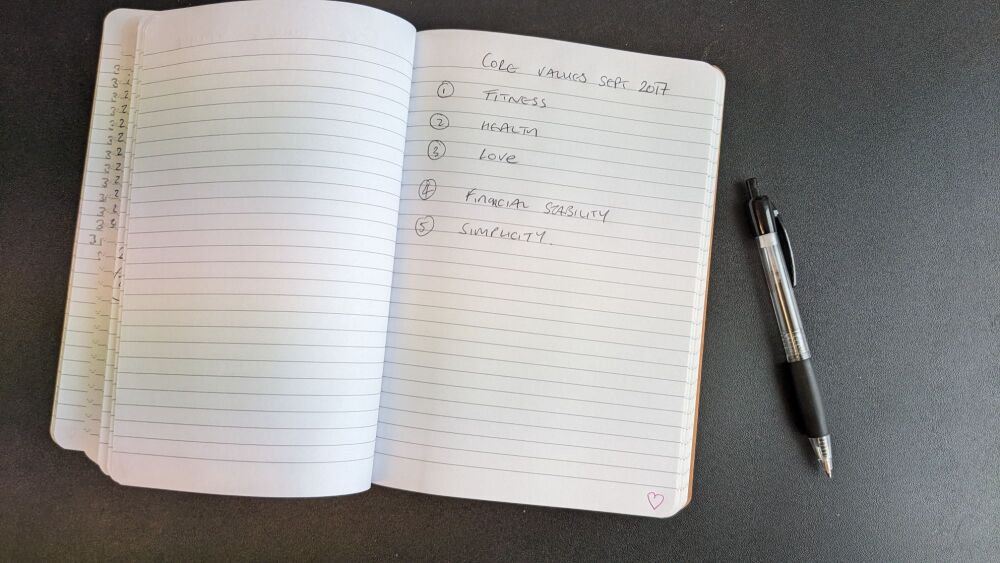 CORE VALUES SEPT 2017
① FITNESS
② HEALTH
③ LOVE
④ FINANCIAL STABILITY
⑤ SIMPLICITY.